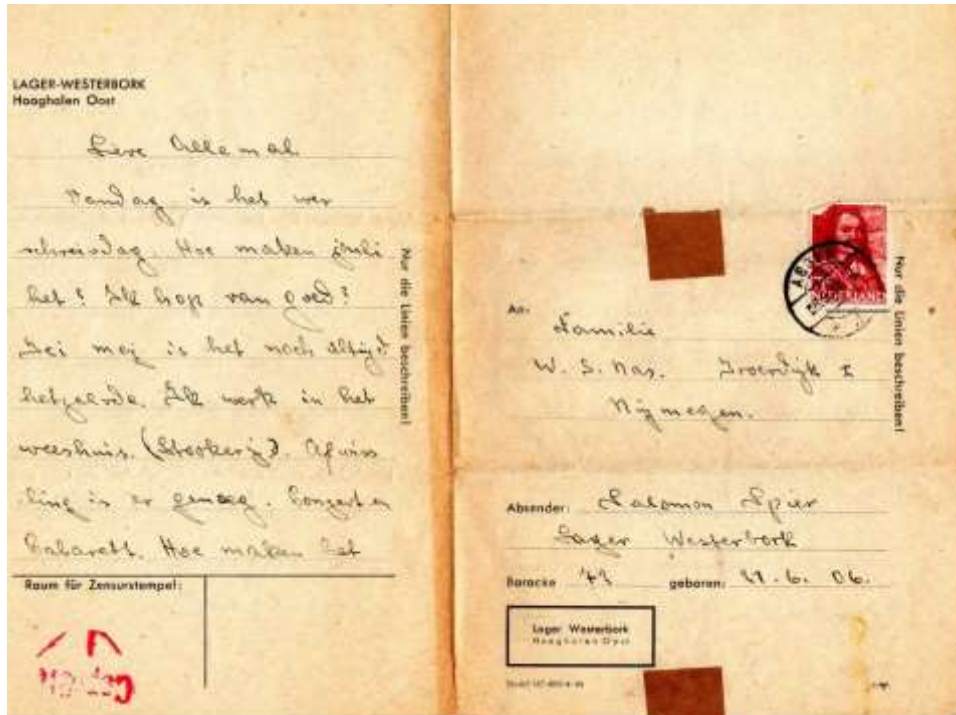 LAGER-WESTERBORK
Hooghalen Oost
Lieve Allemal
Vandag is het wer
schreivdag. Hoe maken juli
het? Ik hop van goed?
Bei mej is het noch altijd
hetzelvde. Ik werk in het
weeshuis. (Stookerij). Afwiss
ling is er genoeg. Conzert en
Cabarett. Hoe maken het
Nur die Linien beschreiben!
Raum für Zensurstempel:
An:
Familie
W. S. Nas.
Nijmegen.
Nur die Linien beschreiben!
Absender: Salomon Spier
Lager Westerbork
Baracke geboren: 6. 06.
Lager Westerbork
Hooghalen Oost